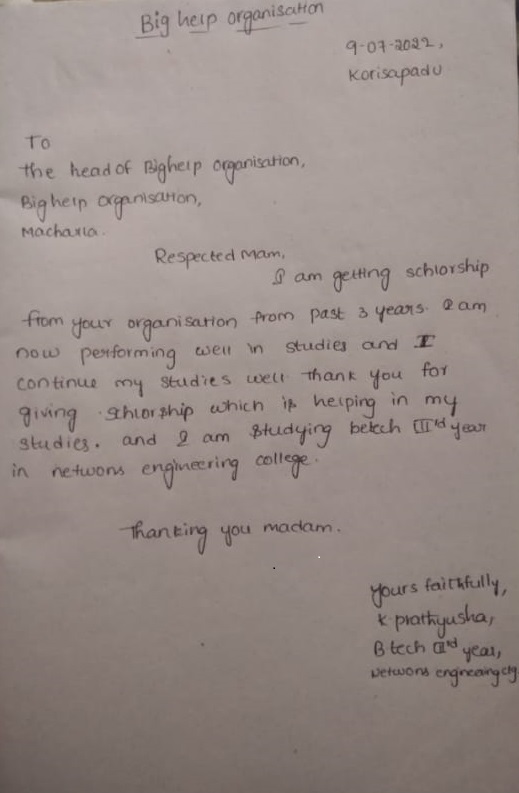 Big help organisation
9-07-2022,
Korisapadu
To
the head of Bighelp organisation,
Big help organisation,
Macharla.
Respected Mam,
I am getting schlorship
from your organisation from past 3 years. I am
now performing well in studies and I
continue my studies well thank you for
giving schlorship which is helping in my
studies. and I am studying betech IIrd year
in netwons engineering college.
Thanking you madam.
Yours faithfully,
K. prathyusha,
B tech IIrd year,
Netwons engineering clg